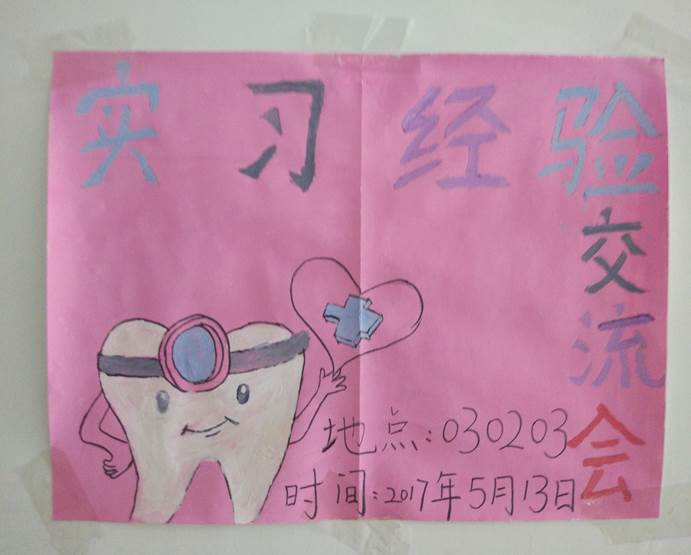 实习经验
交流会
地点:030203
时间:2017年5月13日